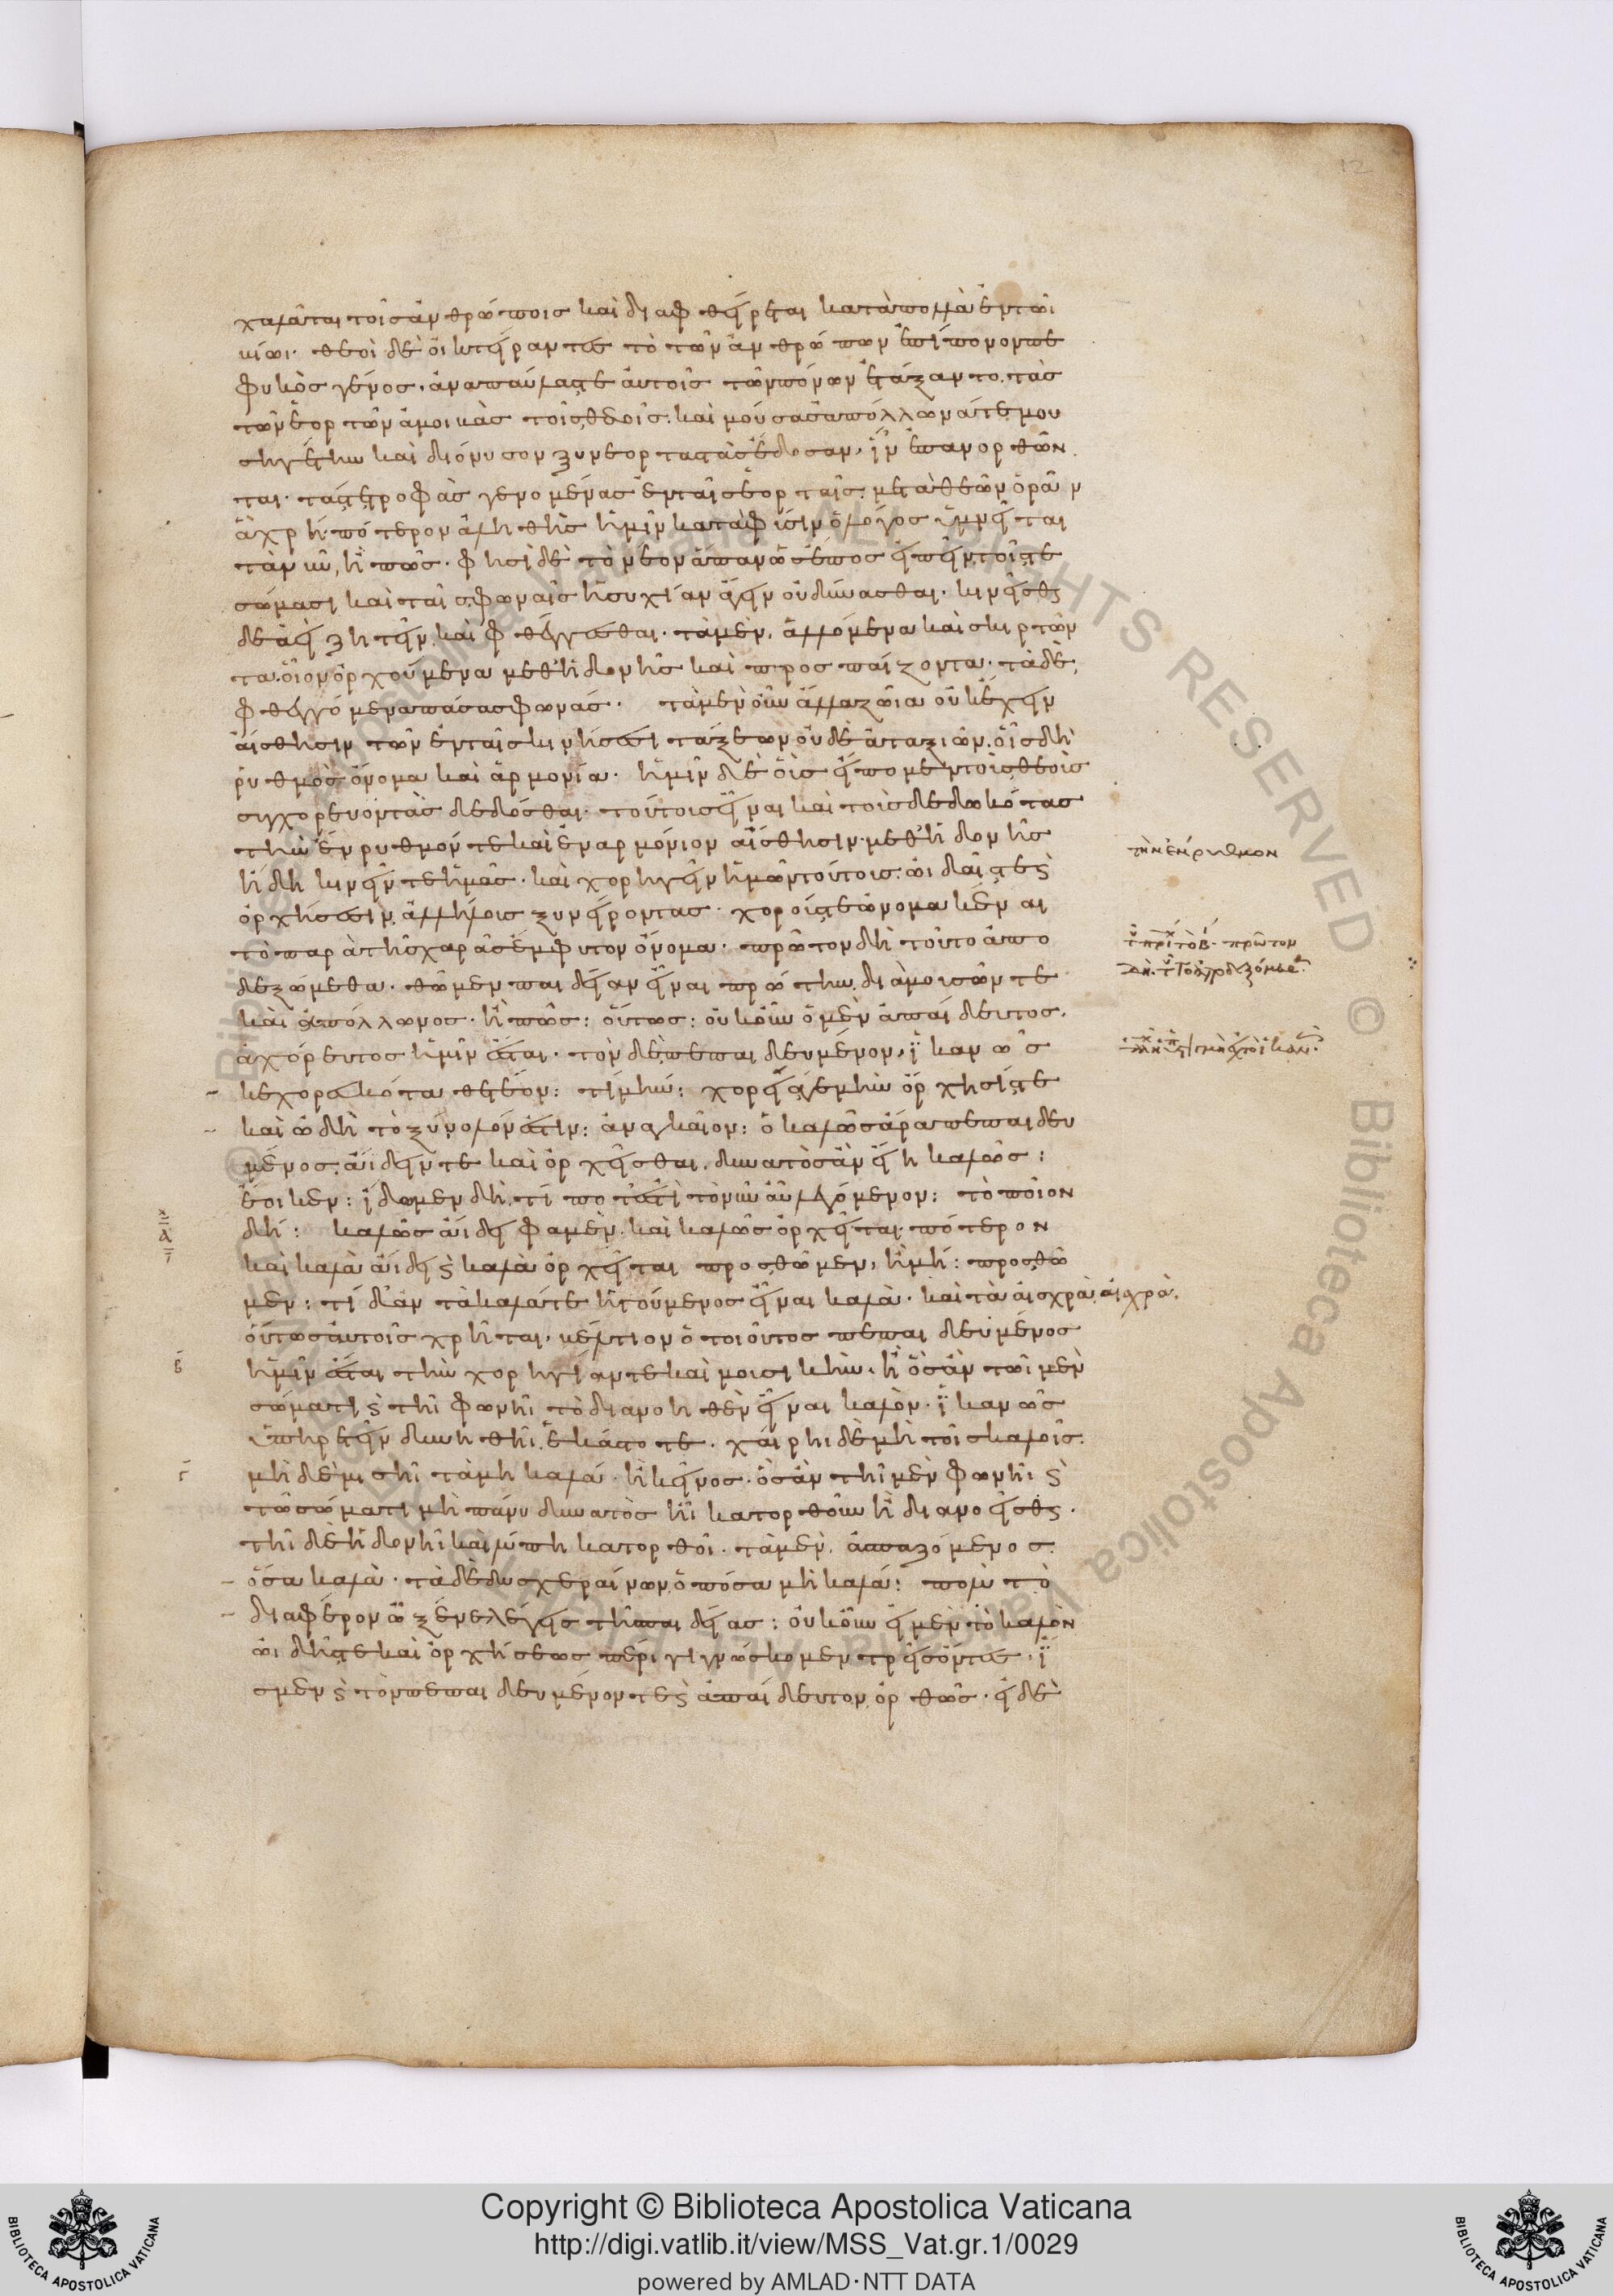 12
χαλᾶται τοῖς ἀνθρώποις καὶ διαφθείρεται κατὰ πολλὰ ἐν τῶι
βίωι· θεοὶ δὲ οἰκτείραντες τὸ τῶν ἀνθρώπων ἐπίπονον πε
φυκὸς γένος, ἀναπαύλας τε αὐτοῖς τῶν πόνων ἐτάξαντο, τὰς
τῶν ἑορτῶν ἀμοιβὰς τοῖς θεοῖς. καὶ μούσας ἀπόλλωνά τε μου
σηγέτην καὶ διόνυσον ξυνεορταστὰς ἔδοσαν, ἵν' ἐπανορθῶν
ται. τάς τε τροφὰς γενομένας ἐν ταῖς ἑορταῖς μετὰ θεῶν ὁρᾶν
ἃ χρή· πότερον ἀληθὴς ἡμῖν κατὰ φύσιν ὁ λόγος ὑμνεῖται
τὰ νῦν, ἢ πῶς· φησὶ δὲ τὸ νέον ἅπαν ὡς ἔπος εἰπεῖν τοῖς τε
σώμασι καὶ ταῖς φωναῖς ἡσυχίαν ἄγειν οὐ δύνασθαι· κινεῖσθαι
δὲ ἀεὶ ζητεῖν καὶ φθέγγεσθαι· τὰ μὲν, ἁλλόμενα καὶ σκιρτῶν
τα. οἷον ὀρχούμενα μεθ' ἡδονῆς καὶ προσπαίζοντα· τὰ δὲ,
φθεγγόμενα πάσας φωνάς. τὰ μὲν οὖν ἄλλα ζῶια οὐκ ἔχειν
αἴσθησιν τῶν ἐν ταῖς κινήσεσι τάξεων οὐδὲ ἀταξιῶν. οἷς δὴ
ῥυθμὸς ὄνομα καὶ ἁρμονία. ἡμῖν δὲ οἷς εἴπομεν τοὺς θεοὺς
συγχορευτὰς δεδόσθαι. τούτους εἶναι καὶ τοὺς δεδωκότας
τὴν ἔνρυθμόν τε καὶ ἐναρμόνιον αἴσθησιν μεθ' ἡδονῆς
ἧι δὴ κινεῖν τε ἡμᾶς. καὶ χορηγεῖν ἡμῶν τούτους. ὠιδαῖς τε καὶ
ὀρχήσεσιν ἀλλήλοις ξυνείροντας. χορούς τε ὠνομακέναι
τὸ παρὰ τῆς χαρᾶς ἔμφυτον ὄνομα. πρῶτον δὴ τοῦτο ἀπο
δεξώμεθα. θῶμεν παιδείαν εἶναι πρώτην διὰ μουσῶν τε
καὶ ἀπόλλωνος. ἢ πῶς: οὕτως: οὐκοῦν ὁ μὲν ἀπαίδευτος,
ἀχόρευτος ἡμῖν ἔσται. τὸν δὲ πεπαιδευμένον, ἱκανῶς
κεχορευκότα θετέον: τί μήν: χορεία γε μὴν ὄρχησίς τε
καὶ ὠδὴ τὸ ξύνολόν ἐστιν: ἀναγκαῖον: ὁ καλῶς ἄρα πεπαιδευ
μένος. ἄιδειν τε καὶ ὀρχεῖσθαι, δυνατὸς ἂν εἴη καλῶς:
ἔοικεν: ἴδωμεν δὴ, τί ποτ' ἐστὶ τὸ νῦν αὖ λεγόμενον: τὸ ποῖον
δή: καλῶς ἄιδει φαμὲν. καὶ καλῶς ὀρχεῖται. πότερον
καὶ καλὰ ἄιδει καὶ καλὰ ὀρχεῖται προσθῶμεν, ἢ μή: προσθῶ
μεν: τί δ' ἂν τὰ καλά τε ἡγούμενος εἶναι καλὰ. καὶ τὰ αἰσχρὰ, αἰσχρὰ,
οὕτως αὐτοῖς χρῆται, βέλτιον ὁ τοιοῦτος πεπαιδευμένος
ἡμῖν ἔσται τὴν χορηγίαν τε καὶ μουσικὴν. ἢ ὃς ἂν τῶι μὲν
σώματι καὶ τῆι φωνῆι τὸ διανοηθὲν εἶναι καλὸν. ἱκανῶς
ὑπηρετεῖν δυνηθῆι ἑκάστοτε. χαίρηι δὲ μὴ τοῖς καλοῖς.
μηδὲ μισῆι τὰ μὴ καλά. ἢ κεῖνος. ὃς ἂν τῆι μὲν φωνῆι καὶ
τῶ σώματι μὴ πάνυ δυνατὸς ἦι κατορθοῦν ἢ διανοεῖσθαι.
τῆι δὲ ἡδονῆι καὶ λύπηι κατορθοῖ. τὰ μὲν, ἀσπαζόμενος.
ὅσα καλὰ. τὰ δὲ δυσχεραίνων, ὁπόσα μὴ καλά: πολὺ τὸ
διαφέρον ὦ ξένε λέγεις τῆς παιδείας: οὐκοῦν εἰ μὲν τὸ καλὸν
ὠιδῆς τε καὶ ὀρχήσεως πέρι γιγνώσκομεν τρεῖς ὄντες, ἴ
σμεν καὶ τὸν πεπαιδευμένον τε καὶ ἀπαίδευτον ὀρθῶς. εἰ δὲ
τὴν ἔνρυθμον
Copyright © Biblioteca Apostolica Vaticana
http://digi.vatlib.it/view/MSS_Vat.gr.1/0029
powered by AMLAD·NTT DATA
BIBLIOTECA APOSTOLICA VATICANA
BIBLIOTECA APOSTOLICA VATICANA